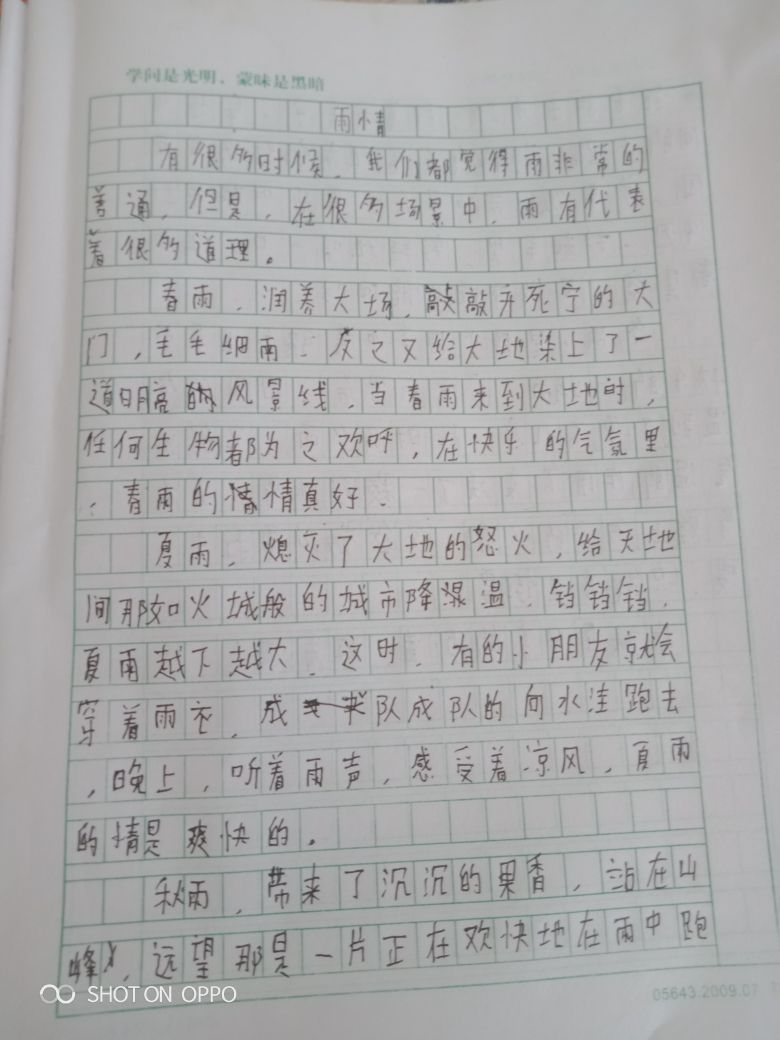 学问是光明，蒙昧是黑暗
雨情
有很多时候，我们都觉得雨非常的
普通，但是，在很多场景中，雨有代表
着很多道理。
春雨，润养大场，敲敲开死宁的大
门，毛毛细雨、又给大地染上了一
道明亮的风景线，当春雨来到大地时，
任何生物都为之欢呼，在快乐的气氛里
，春雨的情真好．
夏雨，熄灭了大地的怒火，给天地
间那如火城般的城市降温，铛铛铛，
夏雨越下越大．这时，有的小朋友就会
穿着雨衣，成队成队的向水洼跑去
，晚上，听着雨声，感受着凉风，夏雨
的情是爽快的。
秋雨，带来了沉沉的果香，站在山
峰，远望那是一片正在欢快地在雨中跑
SHOT ON OPPO
05643.2009.07